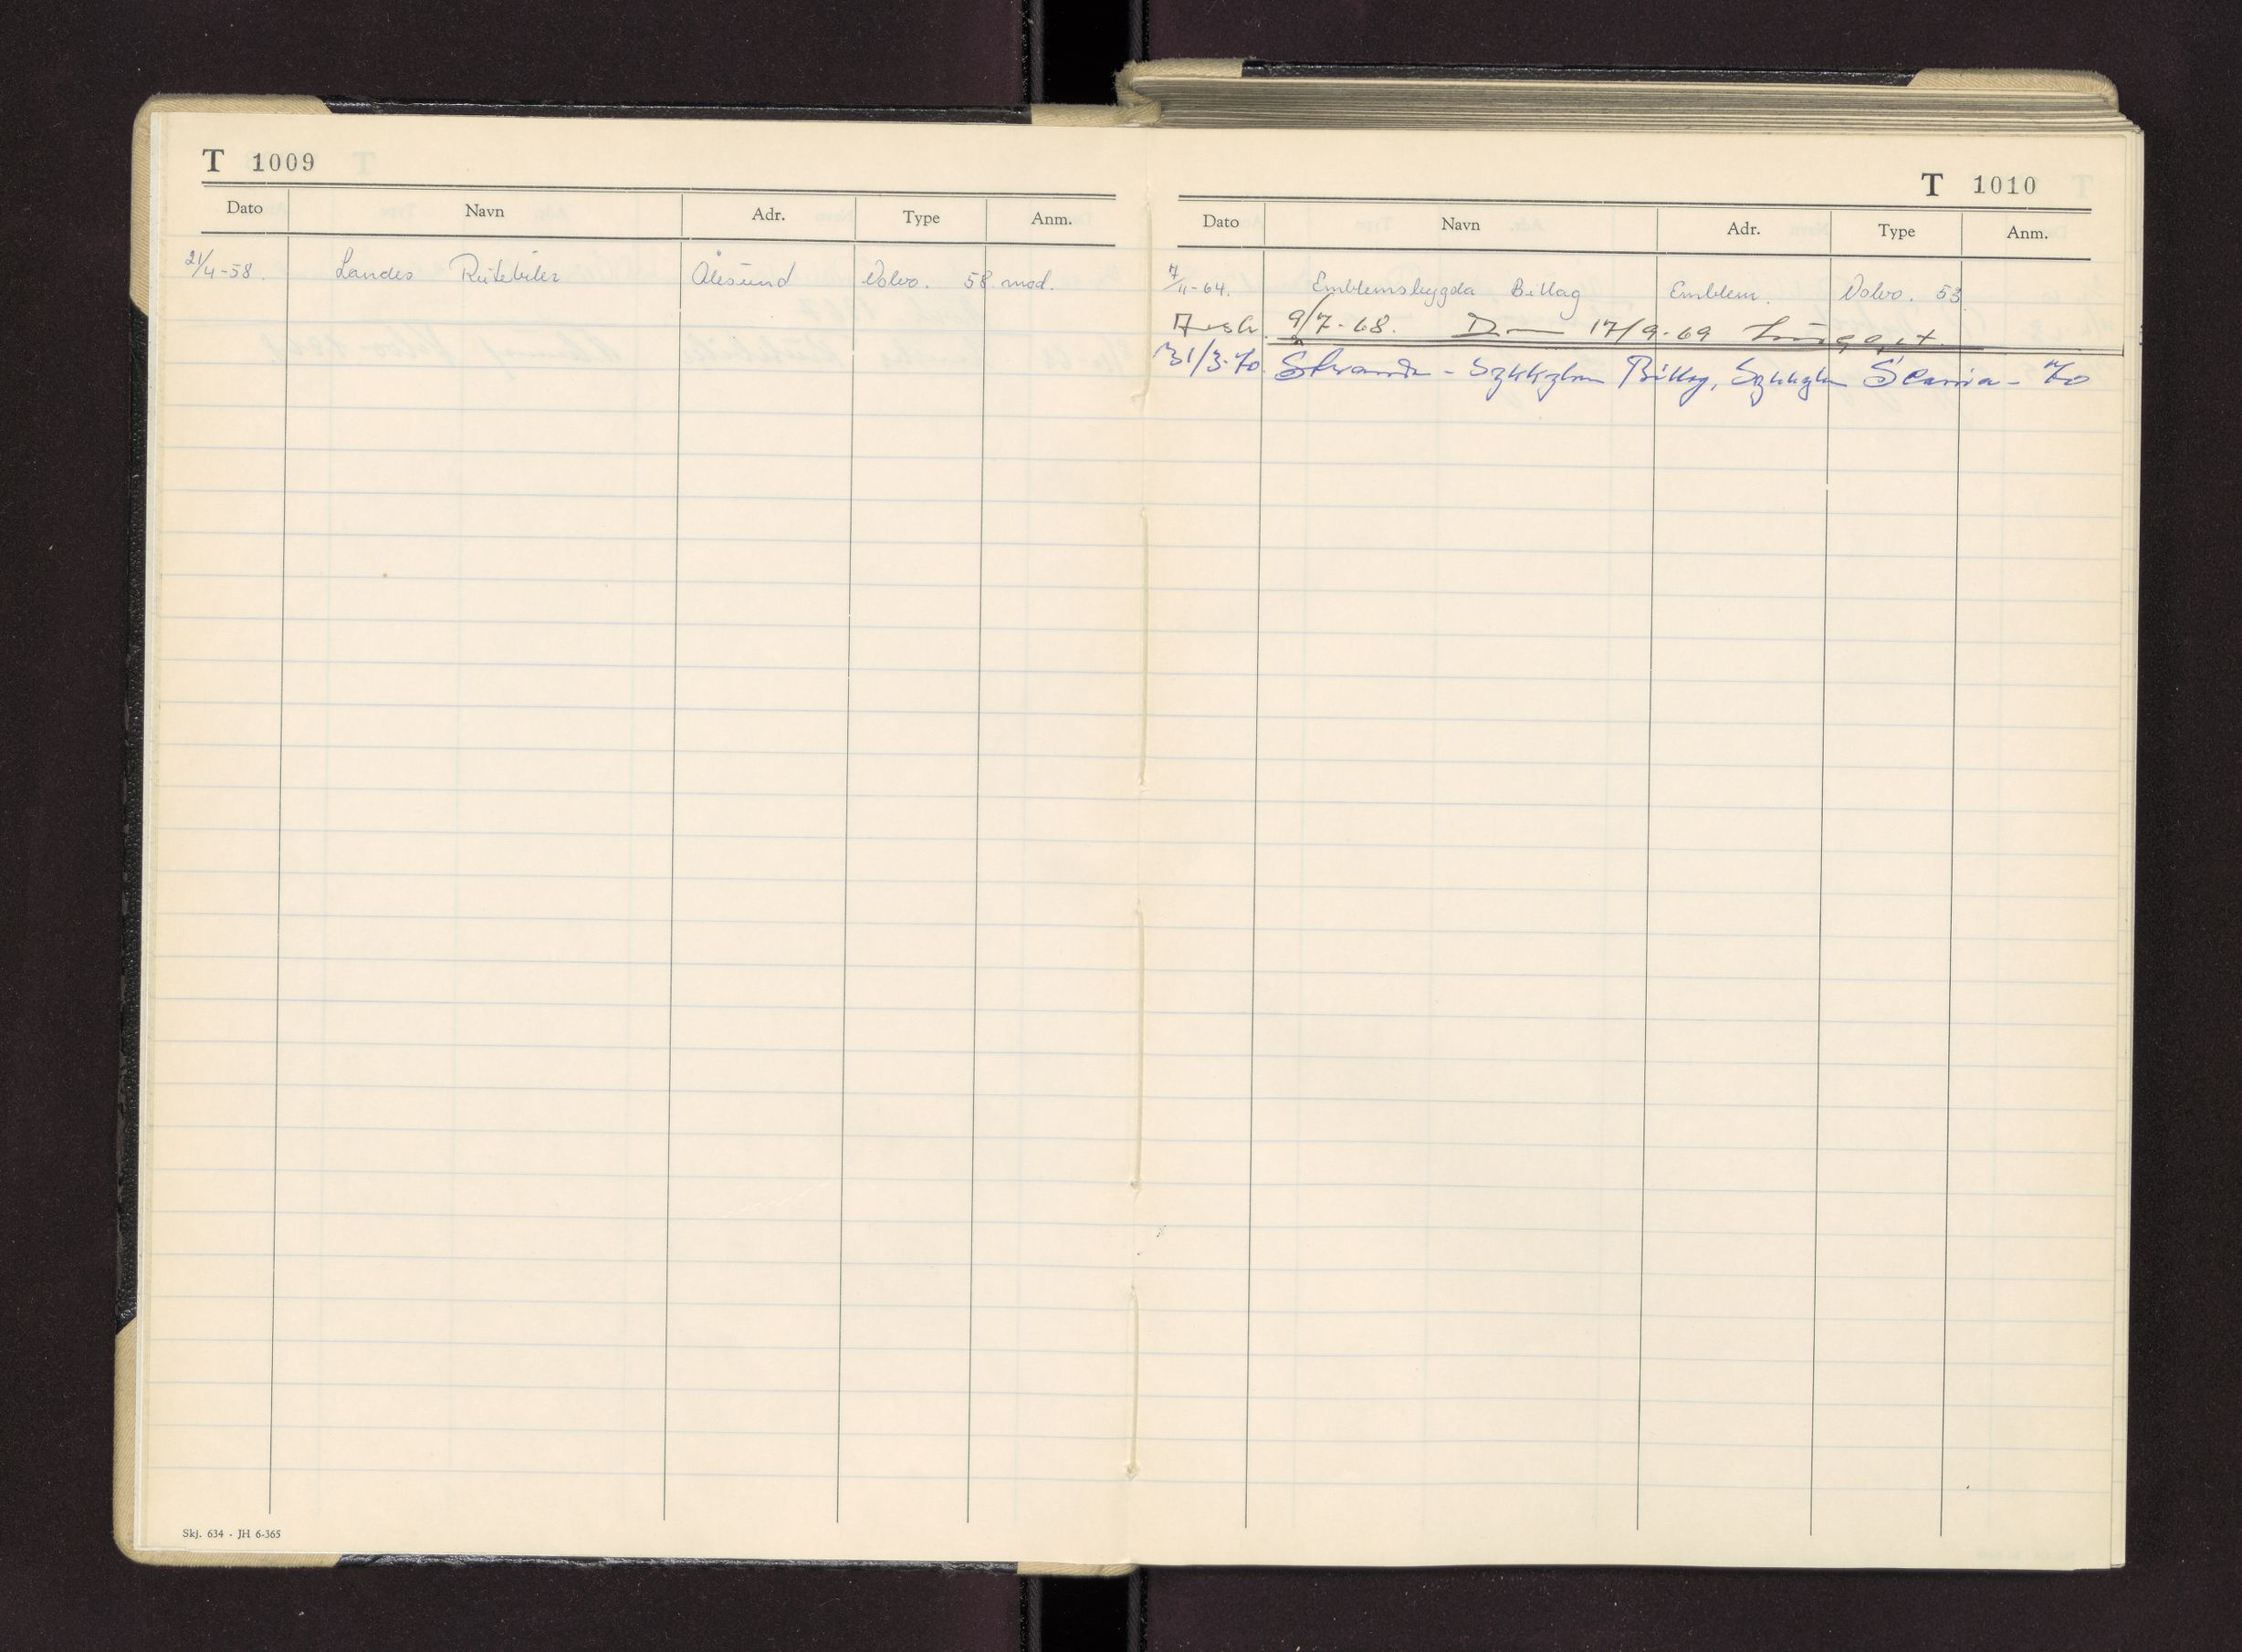 T 1009
Dato Navn Adr. Type Anm.
21/4-58. Landes Rutebiler Ålesund Volvo. 58 mod.
Skj. 634 - JH 6-365
T 1010
Dato Navn Adr. Type Anm.
7/11-64. Emblemsbygda Billag Emblem. Volvo. 53
9/7-68. 17/9-69
31/3-70. Stranda - Sykkylven Billag, Sykkylven Scania - 70